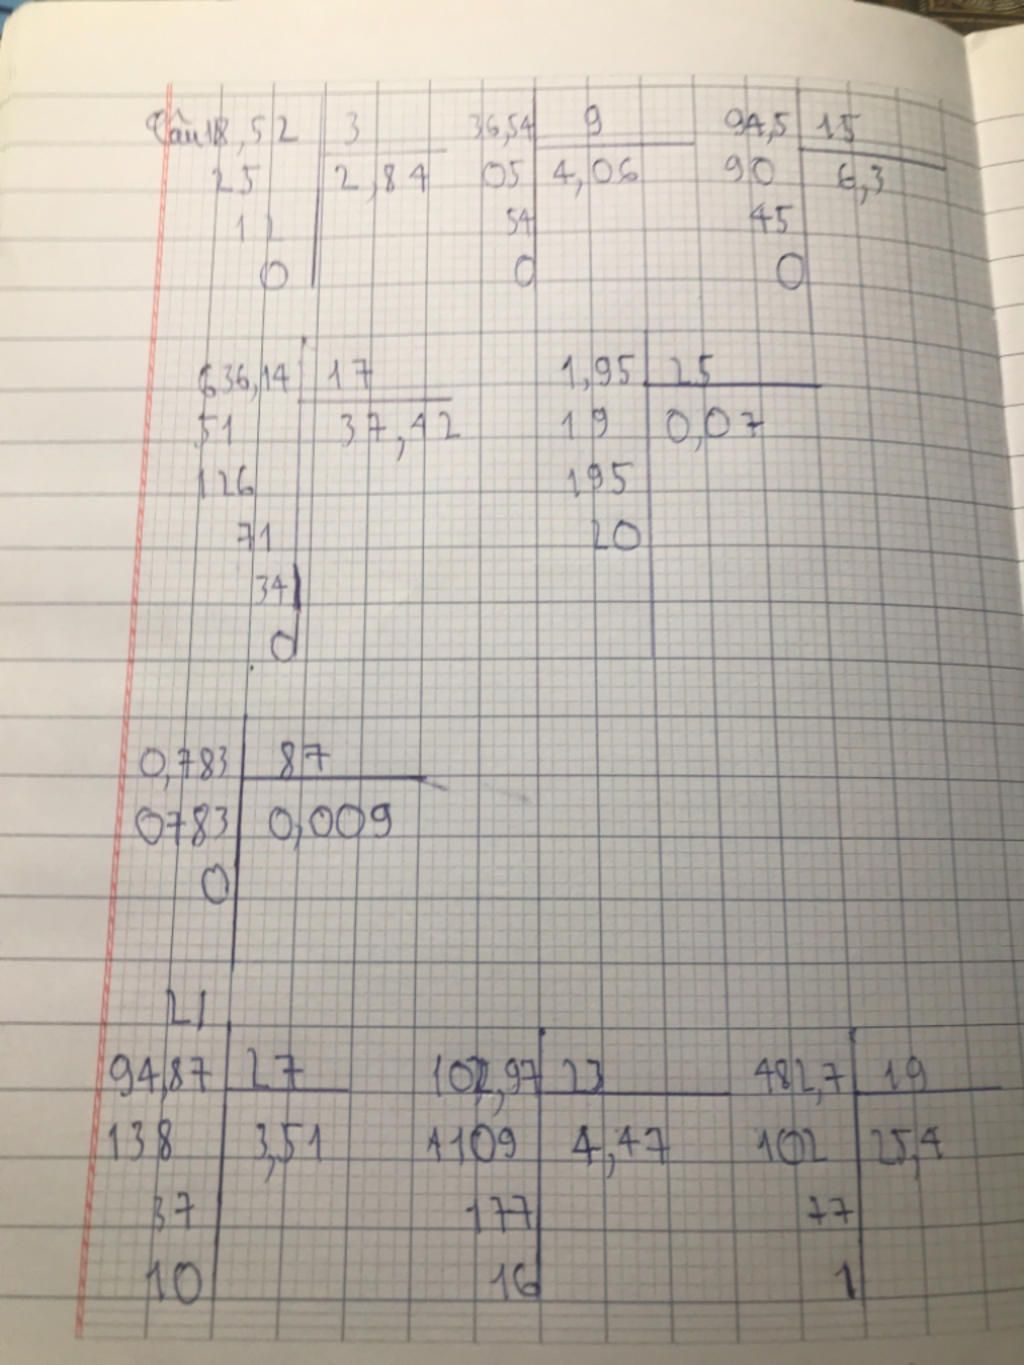 Câu 1 8,52 3 36,54 9 94,5 15
25 2,84 05 4,06 90 6,3
12 54 45
0 0 0
636,14 17 1,95 25
51 37,42 19 0,07
126 195
71 20
34
0
0,783 87
0783 0,009
0
21
94,87 27 102,97 23 482,7 19
138 3,51 1109 4,47 102 25,4
37 177 77
10 16 1